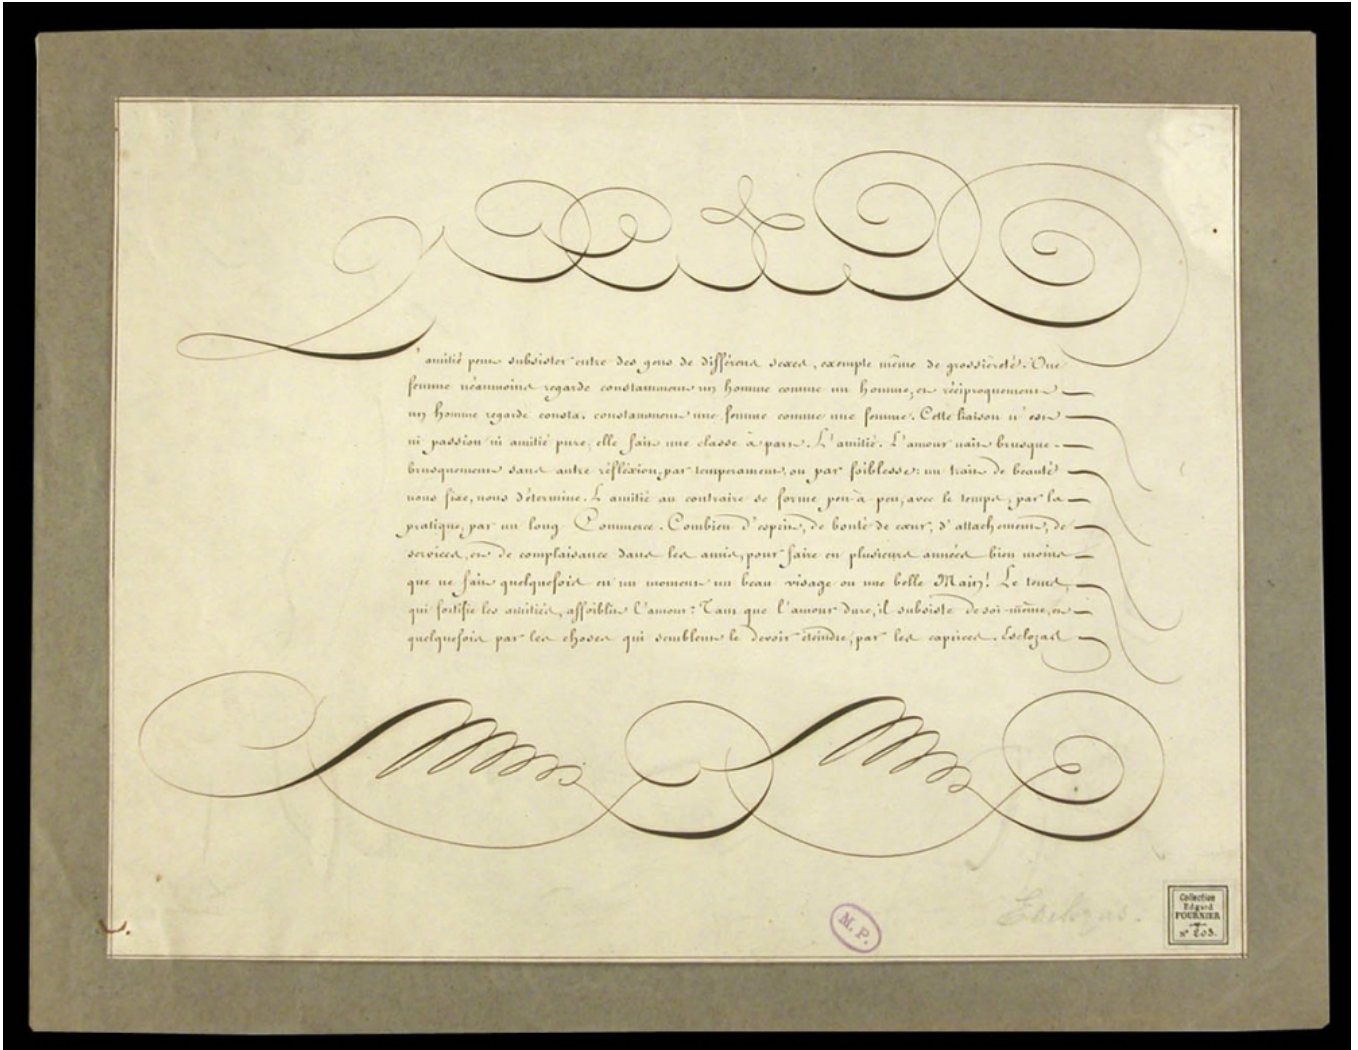 L'amitié peut subsister entre des gens de différens sexes, exempte même de grossièreté. Une
femme néanmoins regarde constamment un homme comme un homme, et réciproquement
un homme regarde consta. constamment une femme comme une femme. Cette liaison n'est
ni passion ni amitié pure, elle fait une classe à part. L'amitié. L'amour nait brusque-
brusquement sans autre réfléxion, par temperament, ou par foiblesse: un trait de beauté
nous fixe, nous détermine. L'amitié au contraire se forme peu-à-peu, avec le temps, par la
pratique, par un long Commerce. Combien d'esprit, de bonté de cœur, d'attachement, de
services, et de complaisance dans les amis, pour faire en plusieurs années bien moins
que ne fait quelquefois en un moment un beau visage ou une belle Main! Le tems,
qui fortifie les amitiés, affoiblit l'amour: Tant que l'amour dure, il subsiste de soi-même, et
quelquefois par les choses qui semblent le devoir éteindre, par les caprices. Esclozas
Esclozas.
M. P.
Collection
Edgard
FOURNIER
n° 203.